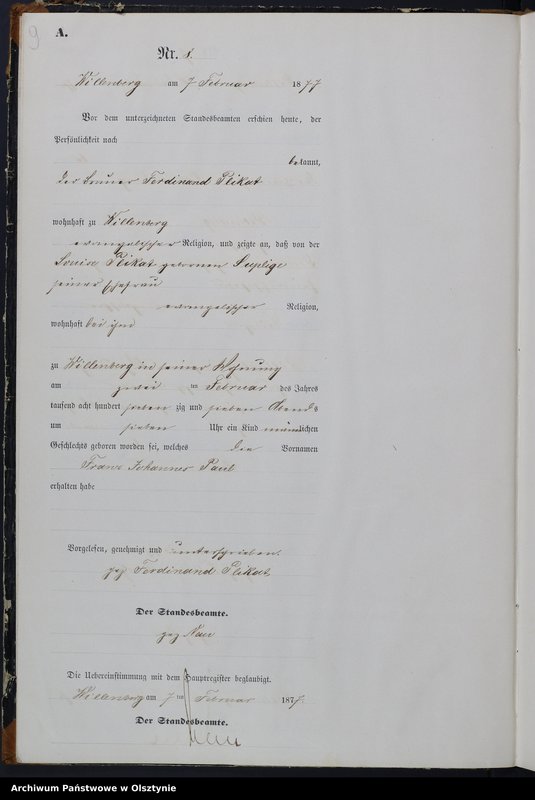 9
A.
Nr. 8.
Willenberg am 7 Februar 1877
Vor dem unterzeichneten Standesbeamten erschien heute, der
Persönlichkeit nach
bekannt,
der Ferdinand Plikat
wohnhaft zu Willenberg
evangelischer Religion, und zeigte an, daß von der
Louise Plikat geborenen
seiner Ehefrau
evangelischer Religion,
wohnhaft bei ihm
zu Willenberg in seiner Wohnung
am zwei ten Februar des Jahres
tausend acht hundert sieben zig und sieben Abends
um sieben Uhr ein Kind männlichen
Geschlechts geboren worden sei, welches die Vornamen
Franz Johannes Paul
erhalten habe
Vorgelesen, genehmigt und unterschrieben.
gez Ferdinand Plikat
Der Standesbeamte.
gez Nau
Die Uebereinstimmung mit dem Hauptregister beglaubigt.
Willenberg am 7 ten Februar 1877.
Der Standesbeamte.
Nau
Archiwum Państwowe w Olsztynie